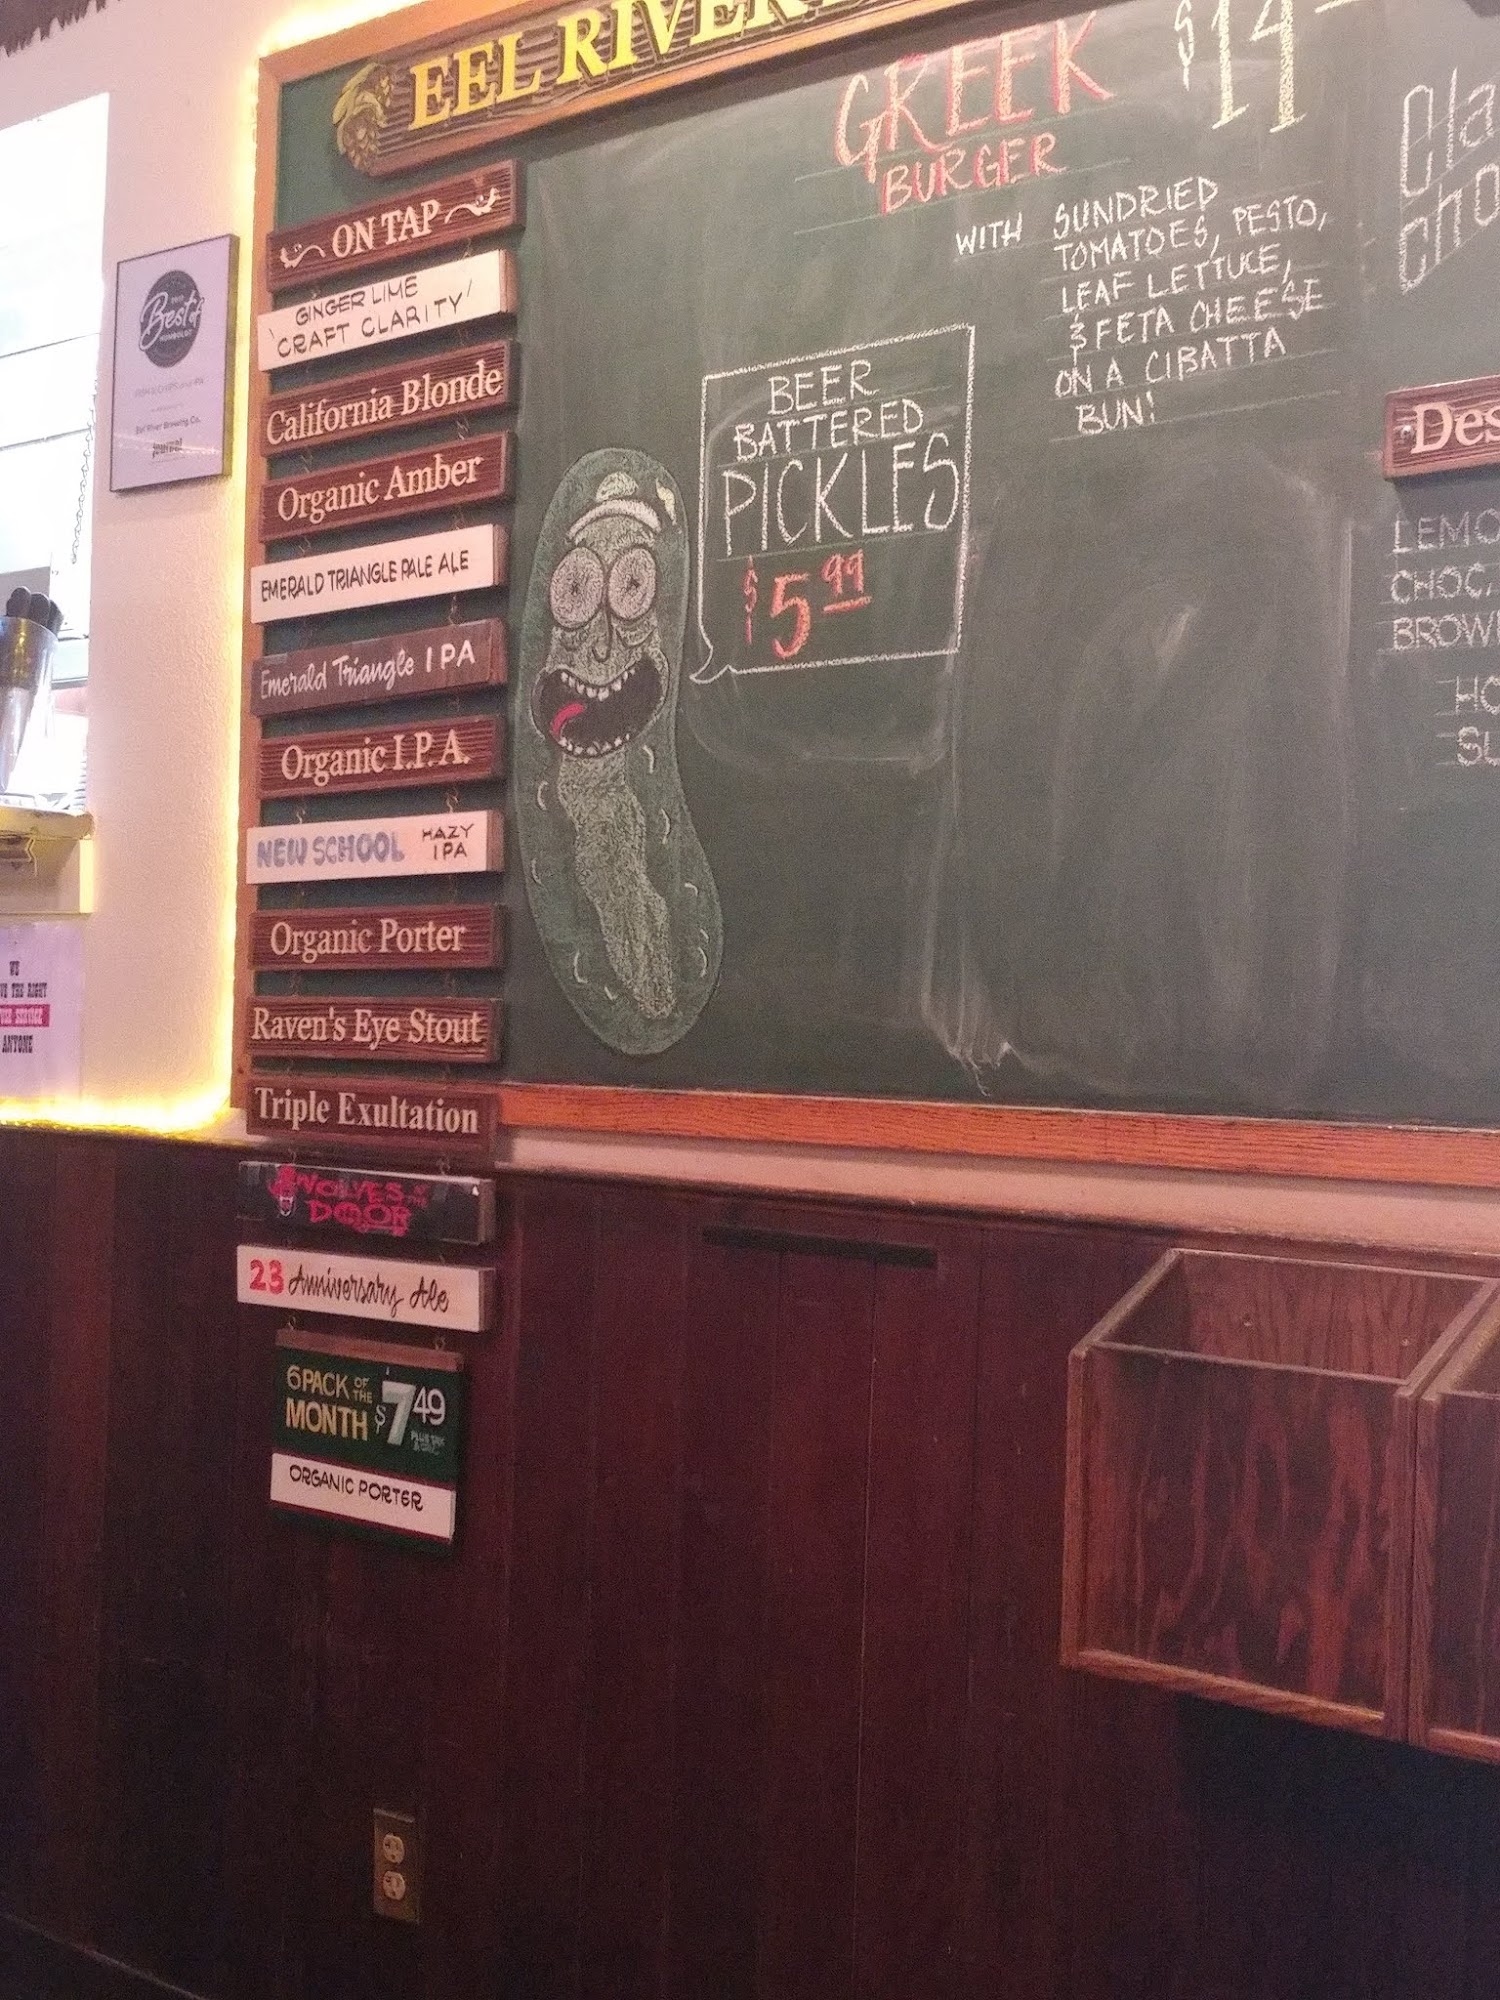 EEL RIVER
ON TAP
GINGER LIME
CRAFT CLARITY
California Blonde
Organic Amber
EMERALD TRIANGLE PALE ALE
Emerald Triangle IPA
Organic I.P.A.
NEW SCHOOL HAZY
IPA
Organic Porter
Raven's Eye Stout
Triple Exultation
WOLVES AT THE
DOOR
23 Anniversary Ale
6 PACK OF THE
MONTH $7 49
ORGANIC PORTER
GREEK $14
BURGER
WITH SUNDRIED
TOMATOES, PESTO,
LEAF LETTUCE,
& FETA CHEESE
ON A CIBATTA
BUN!
BEER
BATTERED
PICKLES
$5 99
Cla
cho
Des
LEMO
CHOC.
BROW
HO
SU
Best of
HUMBOLDT
Eel River Brewing Co.
journal
WE
VE THE RIGHT
SERVICE
ANYONE